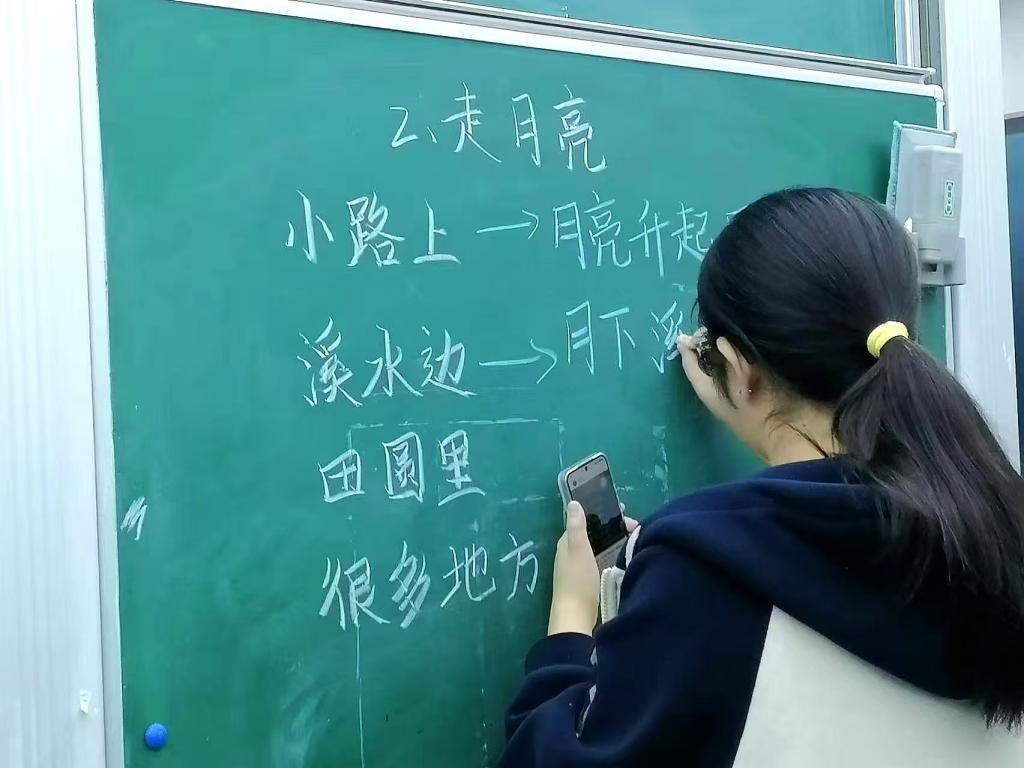 2、走月亮
小路上→月亮升起
溪水边→月下溪
田圆里
很多地方